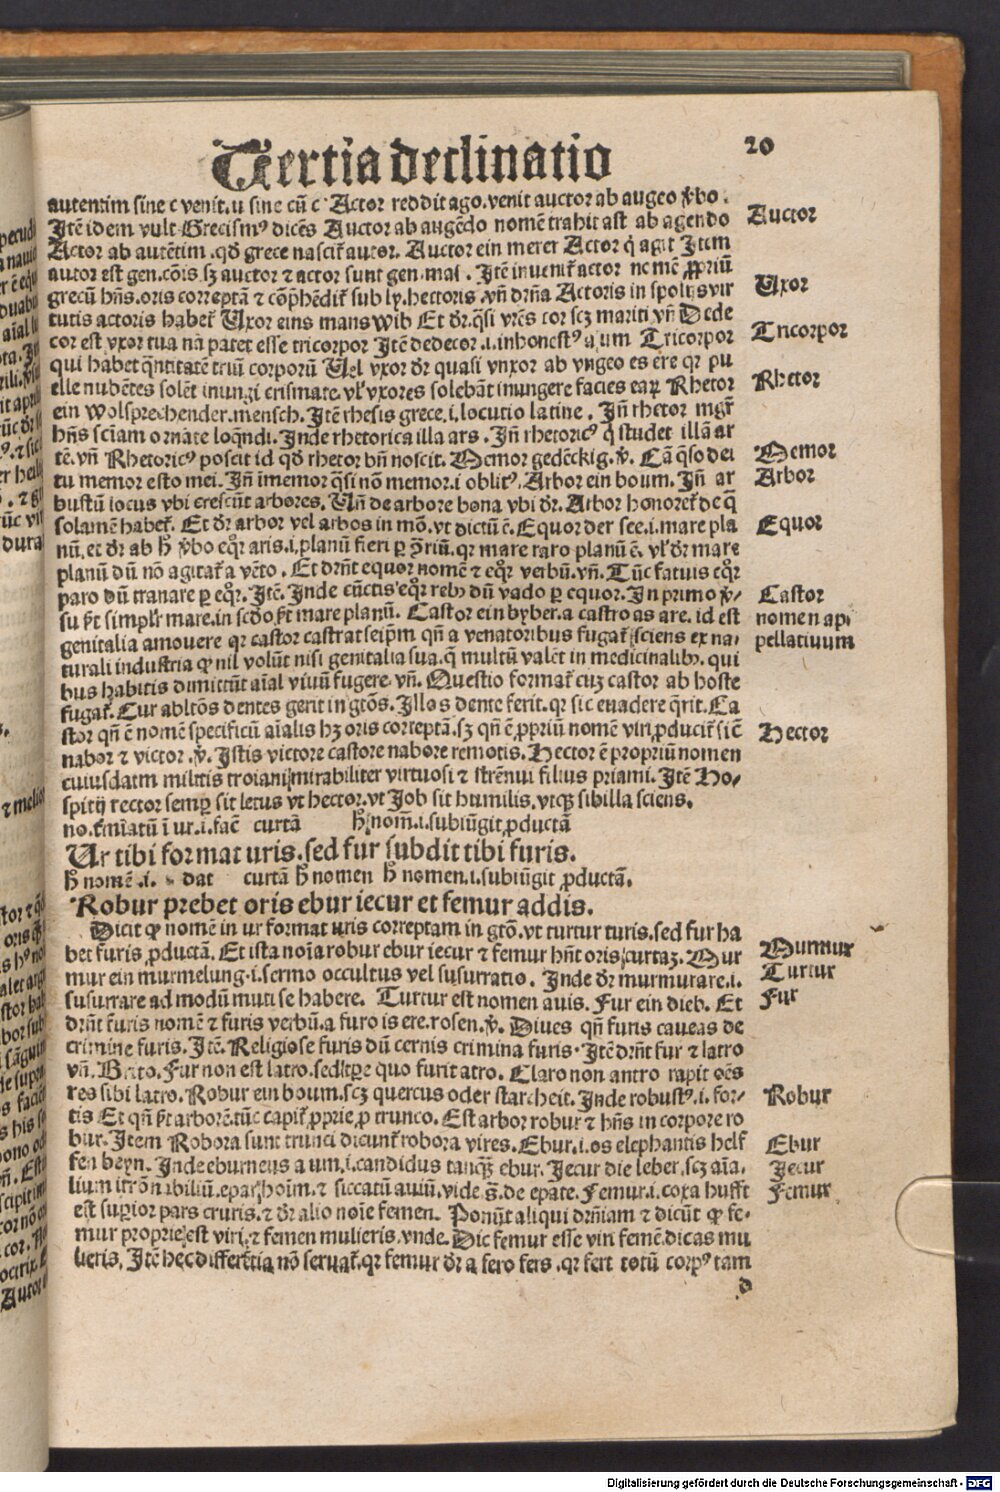 Tertia declinatio
20
autentim sine c venit. u sine cū c Actor reddit ago. venit auctor ab augeo v̄bo.
Itē idem vult Grecismꝰ dicēs Auctor ab augēdo nomē trahit ast ab agendo
Actor ab autētim. qd̄ grece nascit᷑ autor. Auctor ein merer Actor q̄ agit Item
autor est gen. cōis sꝫ auctor ⁊ actor sunt gen. mas. Itē inuenit᷑ actor nomē ꝓpriū
grecū hn̄s. oris correptā ⁊ cōp̄hēdit᷑ sub ly. hectoris. vn̄ dr̄na Actoris in spolijs vir
tutis actoris habet᷑ Uxor eins mans wib Et dr̄. q̄si vr̄es cor scꝫ mariti vn̄ Dede
cor est vxor tua nā patet esse tricorpor Itē dedecor .i. inhonestꝰ a um Tricorpor
qui habet q̄ntitatē triū corporū Uel vxor dr̄ quasi vnxor ab vngeo es ere qr pu
elle nubētes solēt inungi crismate. vl̄ vxores solebāt inungere facies eaꝝ Rhetor
ein wolsprechender. mensch. Itē rhesis grece .i. locutio latine. Jn̄ rhetor mgr̄
hn̄s sciam ornate loq̄ndi. Jnde rhetorica illa ars. Jn̄ rhetoricꝰ q̄ studet illā ar
tē. vn̄ Rhetoricꝰ poscit id qd̄ rhetor bn̄ noscit. Memor gedēckig. v̄. Cā q̄so dei
tu memor esto mei. Jn̄ īmemor q̄si nō memor .i oblitꝰ. Arbor ein boum. Jn̄ ar
bustū locus vbi crescūt arbores. Un̄ de arbore bona vbi dr̄. Arbor honoret᷑ de q̄
solamē habet᷑. Et dr̄ arbor vel arbos in mō. vt dictū ē. Equor der see .i. mare pla
nū. et dr̄ ab h̄ v̄bo eqr̄ aris .i. planū fieri ꝑ ꝯriū. qr mare raro planū ē. vl̄ dr̄ mare
planū dū nō agitat᷑ a vēto. Et drn̄t equor nomē ⁊ eqr̄ verbū. vn̄. Tūc fatuis eqr̄
paro dū tranare ꝑ eqr̄. Itē. Jnde cūctis eqr̄ rebꝫ dū vado ꝑ equor. Jn primo v̄-
su pt̄ simplr̄ mare. in scdo pt̄ mare planū. Castor ein byber. a castro as are. id est
genitalia amovere qr castor castrat seip̄m qn̄ a venatoribus fugat᷑ sciens ex na-
turali industria ꝙ nil volūt nisi genitalia sua. q̄ multū valēt in medicinalibꝫ. qui
bus habitis dimittūt aīal vivū fugere. vn̄. Questio format᷑ cuꝫ castor ab hoste
fugat᷑. Cur abltōs dentes gerit in gtōs. Illos dente ferit. qr sic euadere q̄rit. Ca
stor qn̄ ē nomē specificū aīalis hꝫ oris correptā. sꝫ qn̄ ē ꝓpriū nomē viri ꝓducit᷑ sic
nabor ⁊ victor. v̄. Jstis victore castore nabore remotis. Hector ē propriū nomen
cuiusdam militis troiani mirabiliter virtuosi ⁊ strēnui filius priami. Itē Ho-
spitij rector semꝑ sit letus vt hector. vt Job sit humilis. vtqꝫ sibilla sciens.
no. t᷑miatū ī ur .i. facē curtā h̄ nom̄ .i. subiūgit ꝓductā
Ur tibi format uris. sed fur subdit tibi furis.
h̄ nomē .i. dat curtā h̄ nomen h̄ nomen .i. subiūgit ꝓductā.
Robur prebet oris ebur iecur et femur addis.
Dicit ꝙ nomē in ur format uris correptam in gtō. vt turtur turis. sed fur ha
bet furis ꝓductā. Et ista noīa robur ebur iecur ⁊ femur hn̄t oris curtaꝫ. Mur
mur ein murmelung .i. sermo occultus vel susurratio. Jnde dr̄ murmurare .i.
susurrare ad modū muti se habere. Turtur est nomen avis. Fur ein dieb. Et
drn̄t furis nomē ⁊ furis verbū. a furo is ere. rosen. v̄. Diues qn̄ furis caueas de
crimine furis. Itē. Religiose furis dū cernis crimina furis. Itē drn̄t fur ⁊ latro
vn̄. Fur non est latro. sed quo furit atro. Claro non antro rapit oēs
res sibi latro. Robur ein boum. scꝫ quercus oder starcheit. Jnde robustꝰ .i. for-
tis Et qn̄ pt̄ arborē. tūc capit᷑ ꝓprie ꝓ trunco. Est arbor robur ⁊ hn̄s in corpore ro
bur. Item Robora sunt trunci dicunt᷑ robora vires. Ebur .i. os elephantis helf
fen beyn. Jnde eburneus a um .i. candidus tanqꝫ ebur. Jecur die leber. scꝫ aīa-
lium ⁊ hoīm. ⁊ siccatū auiū. vide s̄. de epate. Femur .i. coxa hufft
est superior pars cruris. ⁊ dr̄ alio noīe femen. Ponūt aliqui drn̄iam ⁊ dicūt ꝙ fe-
mur proprie est viri. ⁊ femen mulieris. vnde. Dic femur esse viri femē. dicas mu
lieris. Itē hec differētia nō seruat᷑. qr femur dr̄ a fero fers. qr fert totū corpꝰ tam
d
Auctor
Uxor
Tricorpor
Rhetor
Memor
Arbor
Equor
Castor
nomen ap-
pellativum
Hector
Murmur
Turtur
Fur
Robur
Ebur
Jecur
Femur
Digitalisierung gefördert durch die Deutsche Forschungsgemeinschaft - DFG